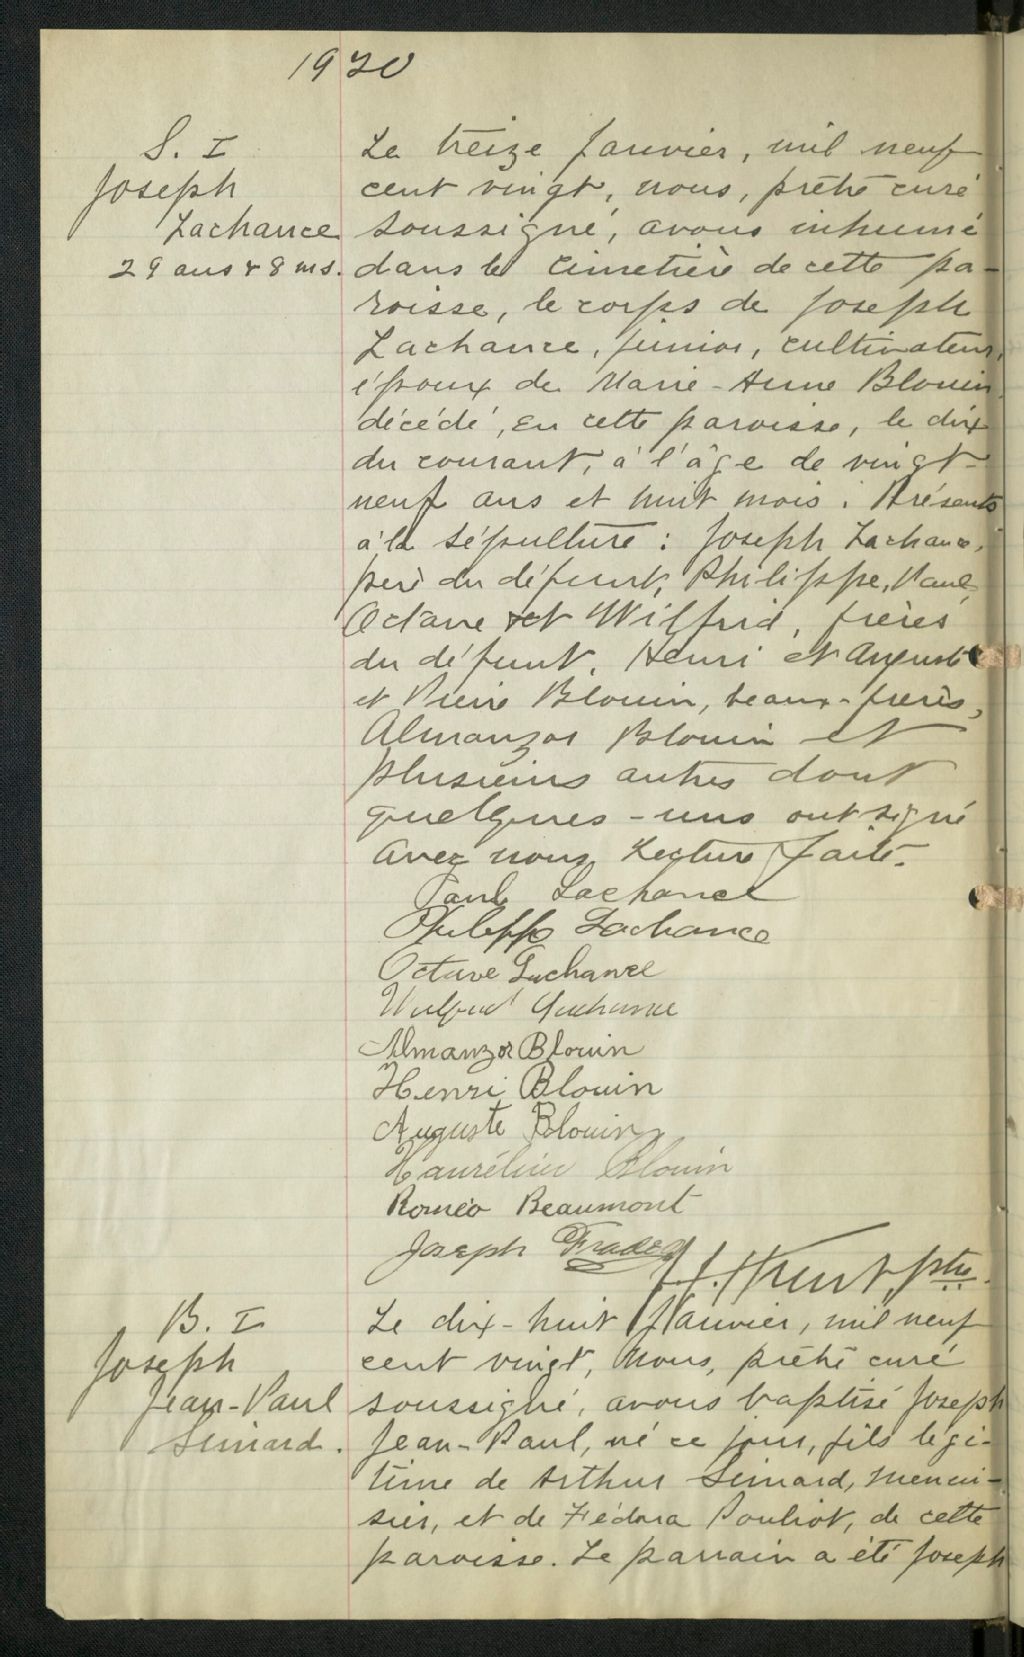 1920
S. I
Joseph
Lachance
29 ans & 8 ms.
Le treize janvier, mil neuf
cent vingt, nous, prêtre curé
soussigné, avons inhumé
dans le cimetière de cette pa-
roisse, le corps de Joseph
Lachance, junior, cultivateur,
époux de Marie-Anne Blouin
décédé, en cette paroisse, le dix
du courant, à l'âge de vingt-
neuf ans et huit mois. Présents
à la sépulture : Joseph Lachance,
père du défunt, Philippe, Paul,
Octave et Wilfrid, frères
du défunt, Henri et Auguste
et Pierre Blouin, beaux-frères,
Almanzor Blouin et
plusieurs autres dont
quelques-uns ont signé
avec nous. Lecture faite.
Paul Lachance
Philippe Lachance
Octave Lachance
Wilfrid Lachance
Almanzor Blouin
Henri Blouin
Auguste Blouin
Blouin
Roméo Beaumont
Joseph
ptre.
B. I
Joseph
Jean-Paul
Simard.
Le dix-huit janvier, mil neuf
cent vingt, Nous, prêtre curé
soussigné, avons baptisé Joseph
Jean-Paul, né ce jour, fils légi-
time de Arthur Simard, menui-
sier, et de Fédora Pouliot, de cette
paroisse. Le parrain a été Joseph